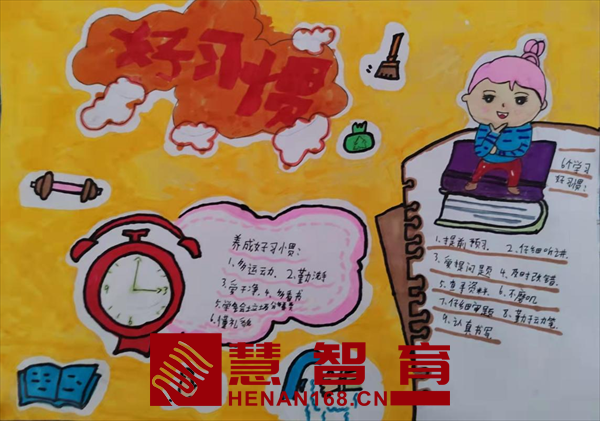 好习惯
养成好习惯:
1.多运动. 2.勤洗手
3.爱干净. 4.多看书
5.学会垃圾分类
6.懂礼貌
6个学习
好习惯:
1.提前预习. 2.仔细听讲.
3.爱提问题 4.及时改错.
5.查字资料. 6.不磨叽
7.仔细审题 8.勤于动笔
9.认真书写
12
3
6
9
慧智育
HENAN168.CN